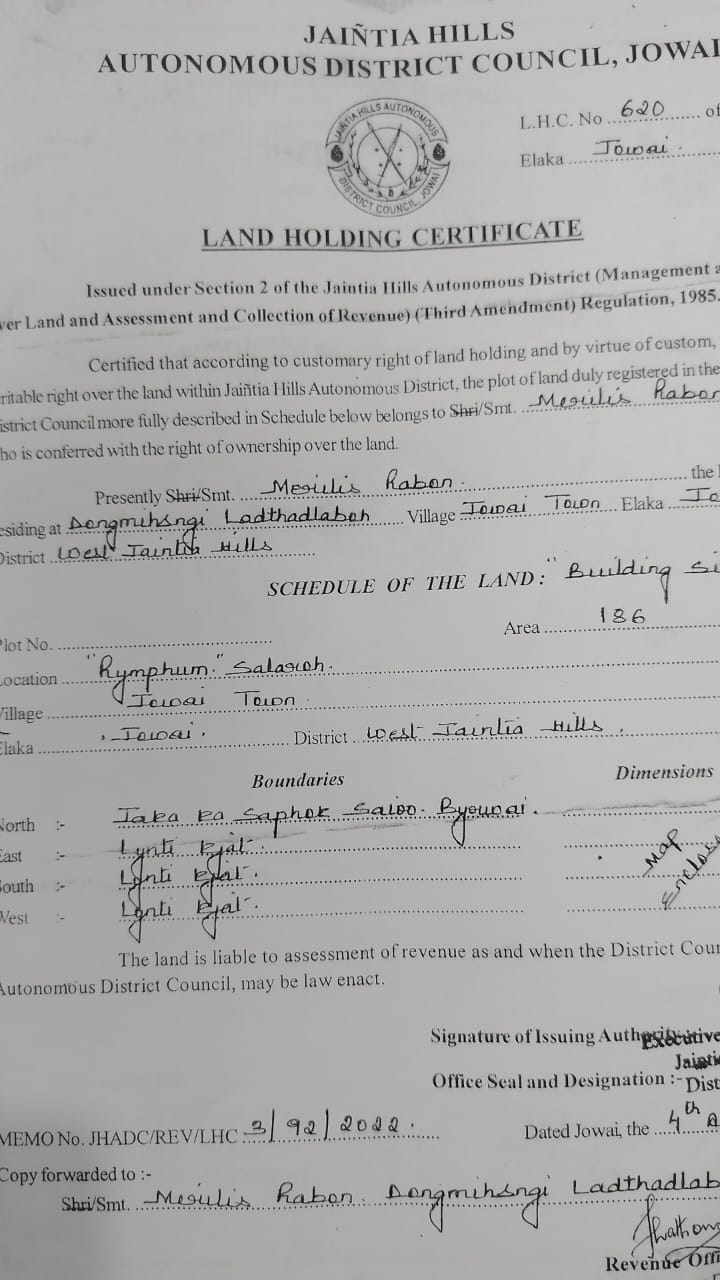 JAIÑTIA HILLS
AUTONOMOUS DISTRICT COUNCIL, JOWAI
JAIÑTIA HILLS AUTONOMOUS
DISTRICT COUNCIL, JOWAI
L.H.C. No 620 of
Elaka Jowai
LAND HOLDING CERTIFICATE
Issued under Section 2 of the Jaintia Hills Autonomous District (Management a
ver Land and Assessment and Collection of Revenue) (Third Amendment) Regulation, 1985.
Certified that according to customary right of land holding and by virtue of custom,
ritable right over the land within Jaiñtia Hills Autonomous District, the plot of land duly registered in the
istrict Council more fully described in Schedule below belongs to Shri/Smt. Merilis Rabon
ho is conferred with the right of ownership over the land.
Presently Shri/Smt. Merilis Rabon the
esiding at Dongmihsngi Ladthadlaboh Village Jowai Town Elaka Jo
District West Jaintia Hills
SCHEDULE OF THE LAND : "Building Si
Plot No.
Area 186
Location "Rymphum" Salaroh.
Village Jowai Town
Elaka Jowai. District West Jaintia Hills.
Boundaries Dimensions
North :- Jaka ka Saphor Saioo
East :- Lynti kjat.
South :- Lynti kjat.
West :- Lynti kjat.
Map
Enclos
The land is liable to assessment of revenue as and when the District Cour
Autonomous District Council, may be law enact.
Signature of Issuing Authority Executive
Jainti
Office Seal and Designation :- Dist
MEMO No. JHADC/REV/LHC 3/92/2022. Dated Jowai, the 4th A
Copy forwarded to :-
Shri/Smt. Merilis Rabon. Dongmihsngi Ladthadlab
Revenue Offi